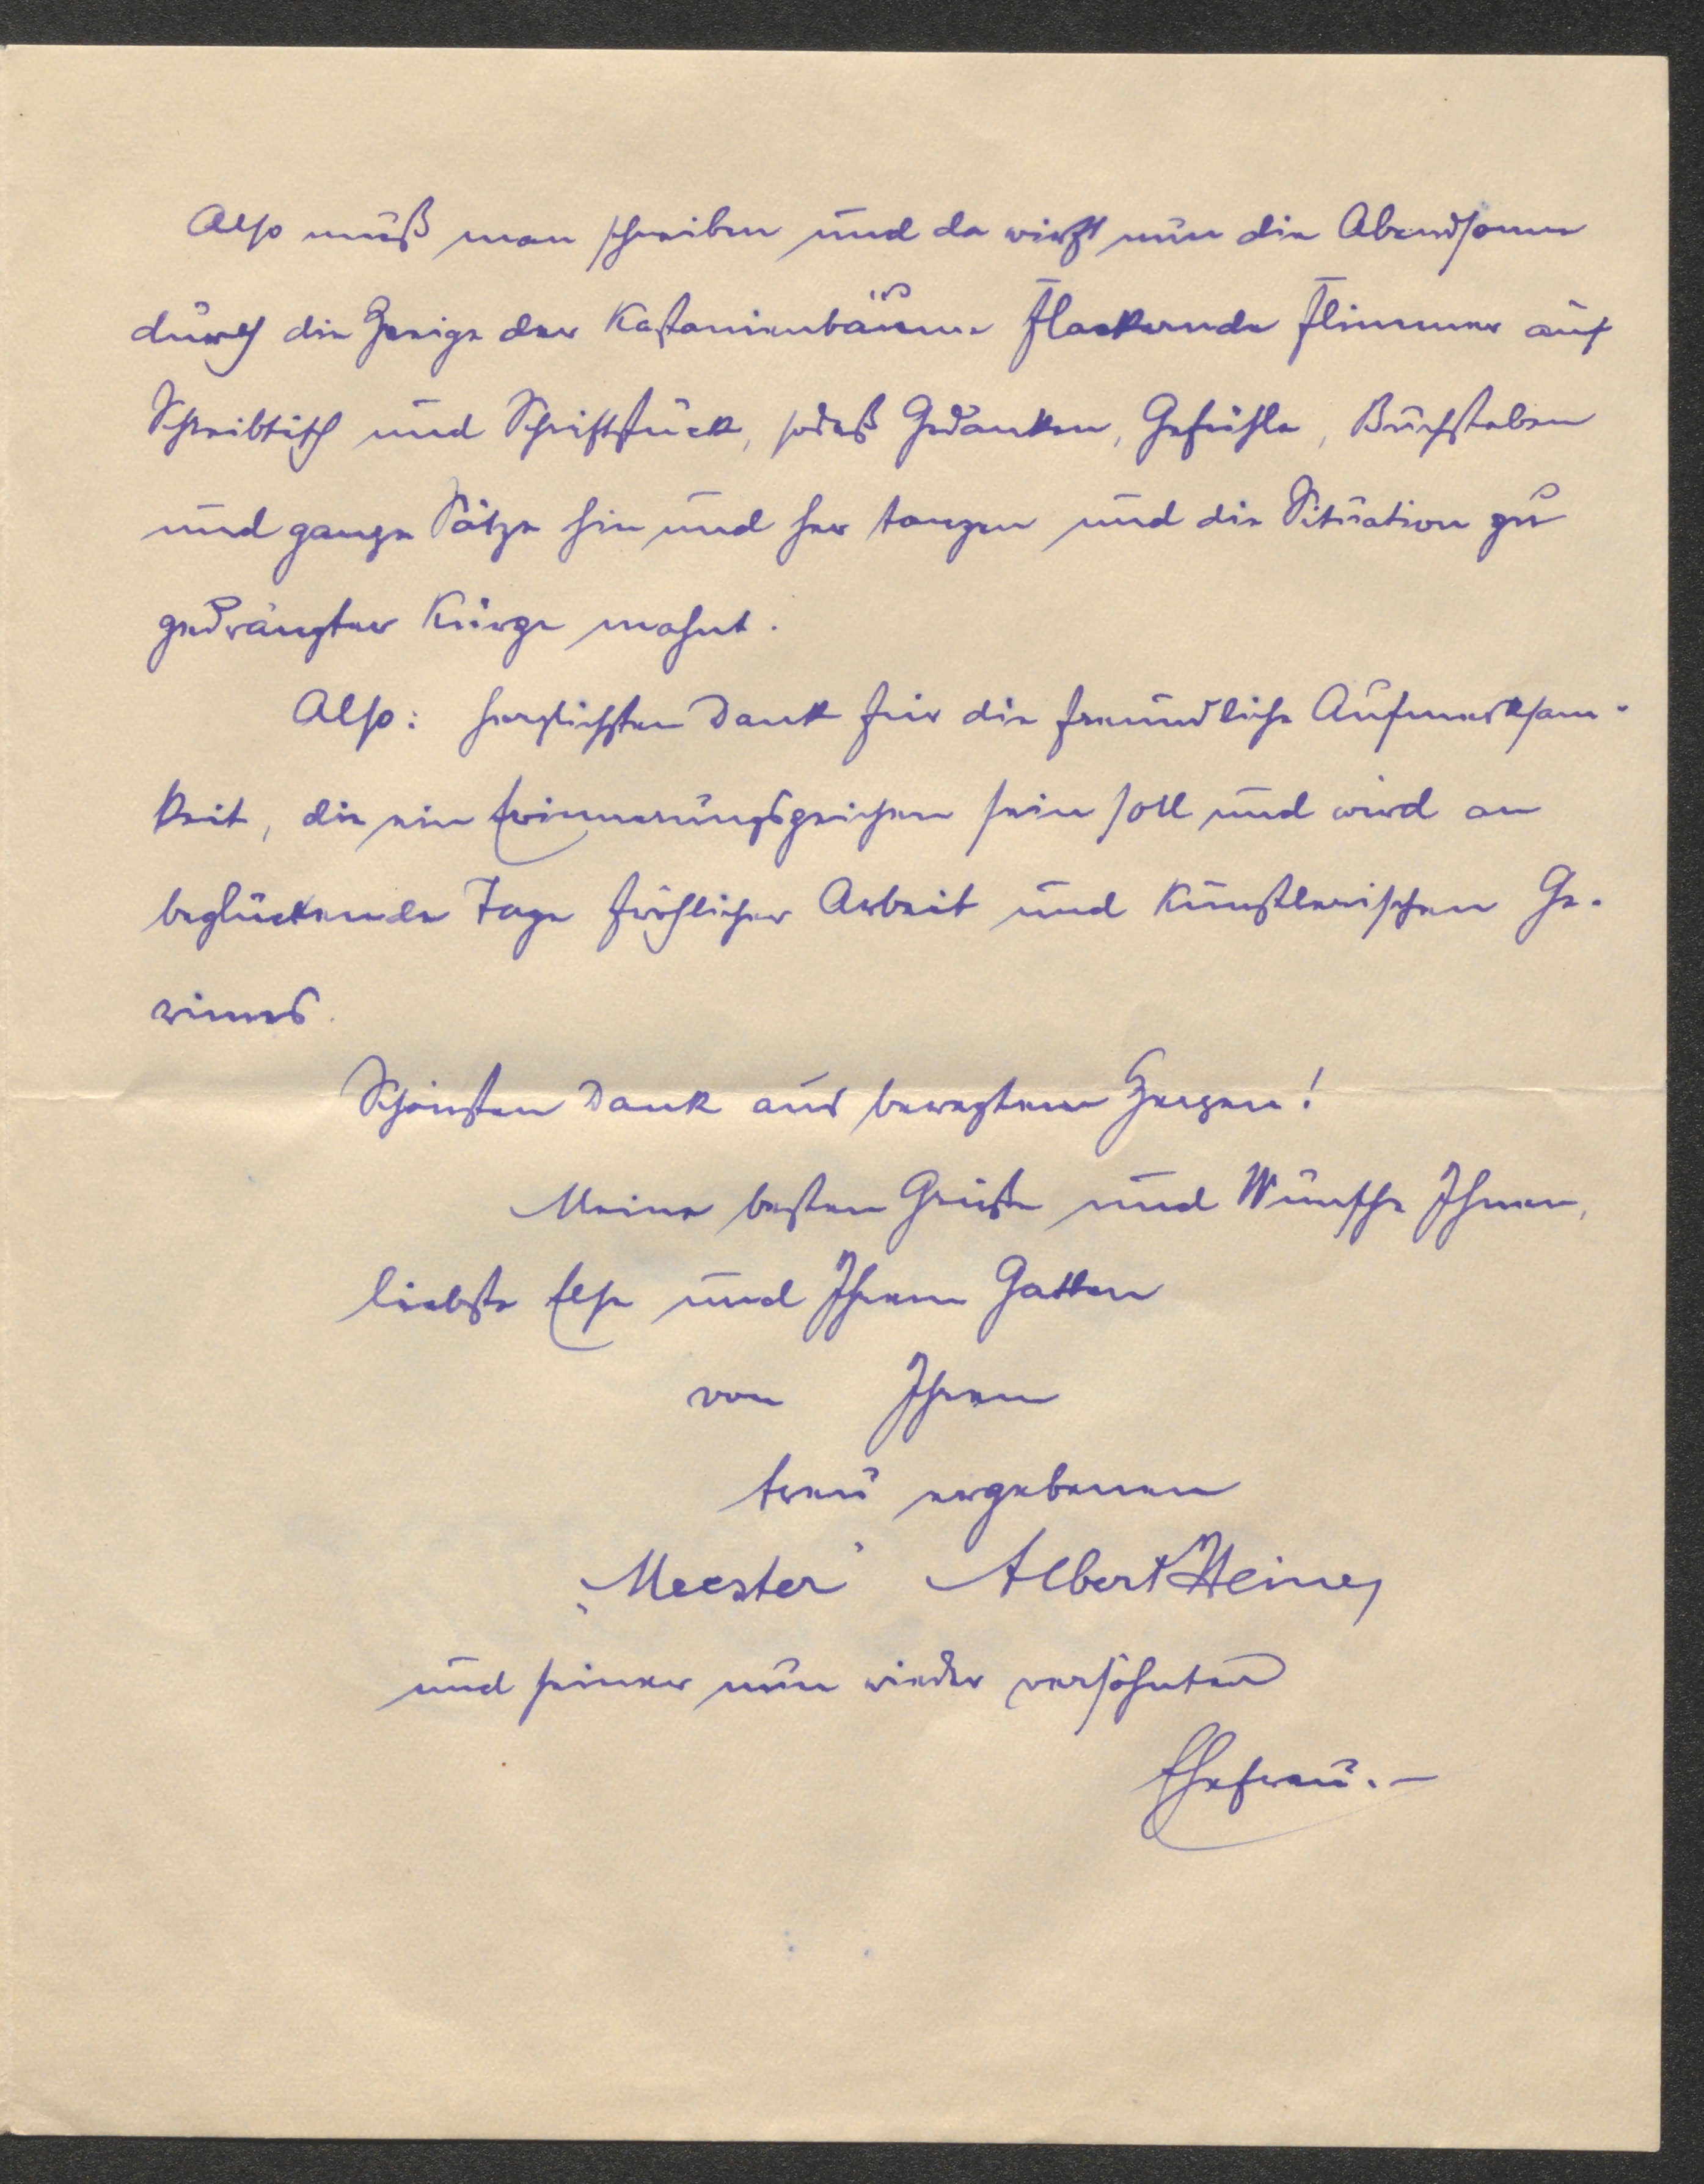 Also muß man schreiben und da wirft nun die Abendsonne
durch die Zweige der Kastanienbäume flackernde Flimmer auf
Schreibtisch und Schriftstück, sodaß Gedanken, Gefühle, Buchstaben
und ganze Sätze hin und her tanzen und die Situation zu
gedrängter Kürze mahnt.
Also: herzlichsten Dank für die freundliche Aufmerksam-
keit, die ein Erinnerungszeichen sein soll und wird an
beglückende Tage fröhlicher Arbeit und künstlerischen Ge-
winnes.
Schönsten Dank aus bewegtem Herzen!
Meine besten Grüße und Wünsche Ihnen,
liebste Else und Ihrem Gatten
von Ihrem
treu ergebenen
„Meester" Albert Heine,
und seiner nun wieder versöhnten
Ehefrau.–